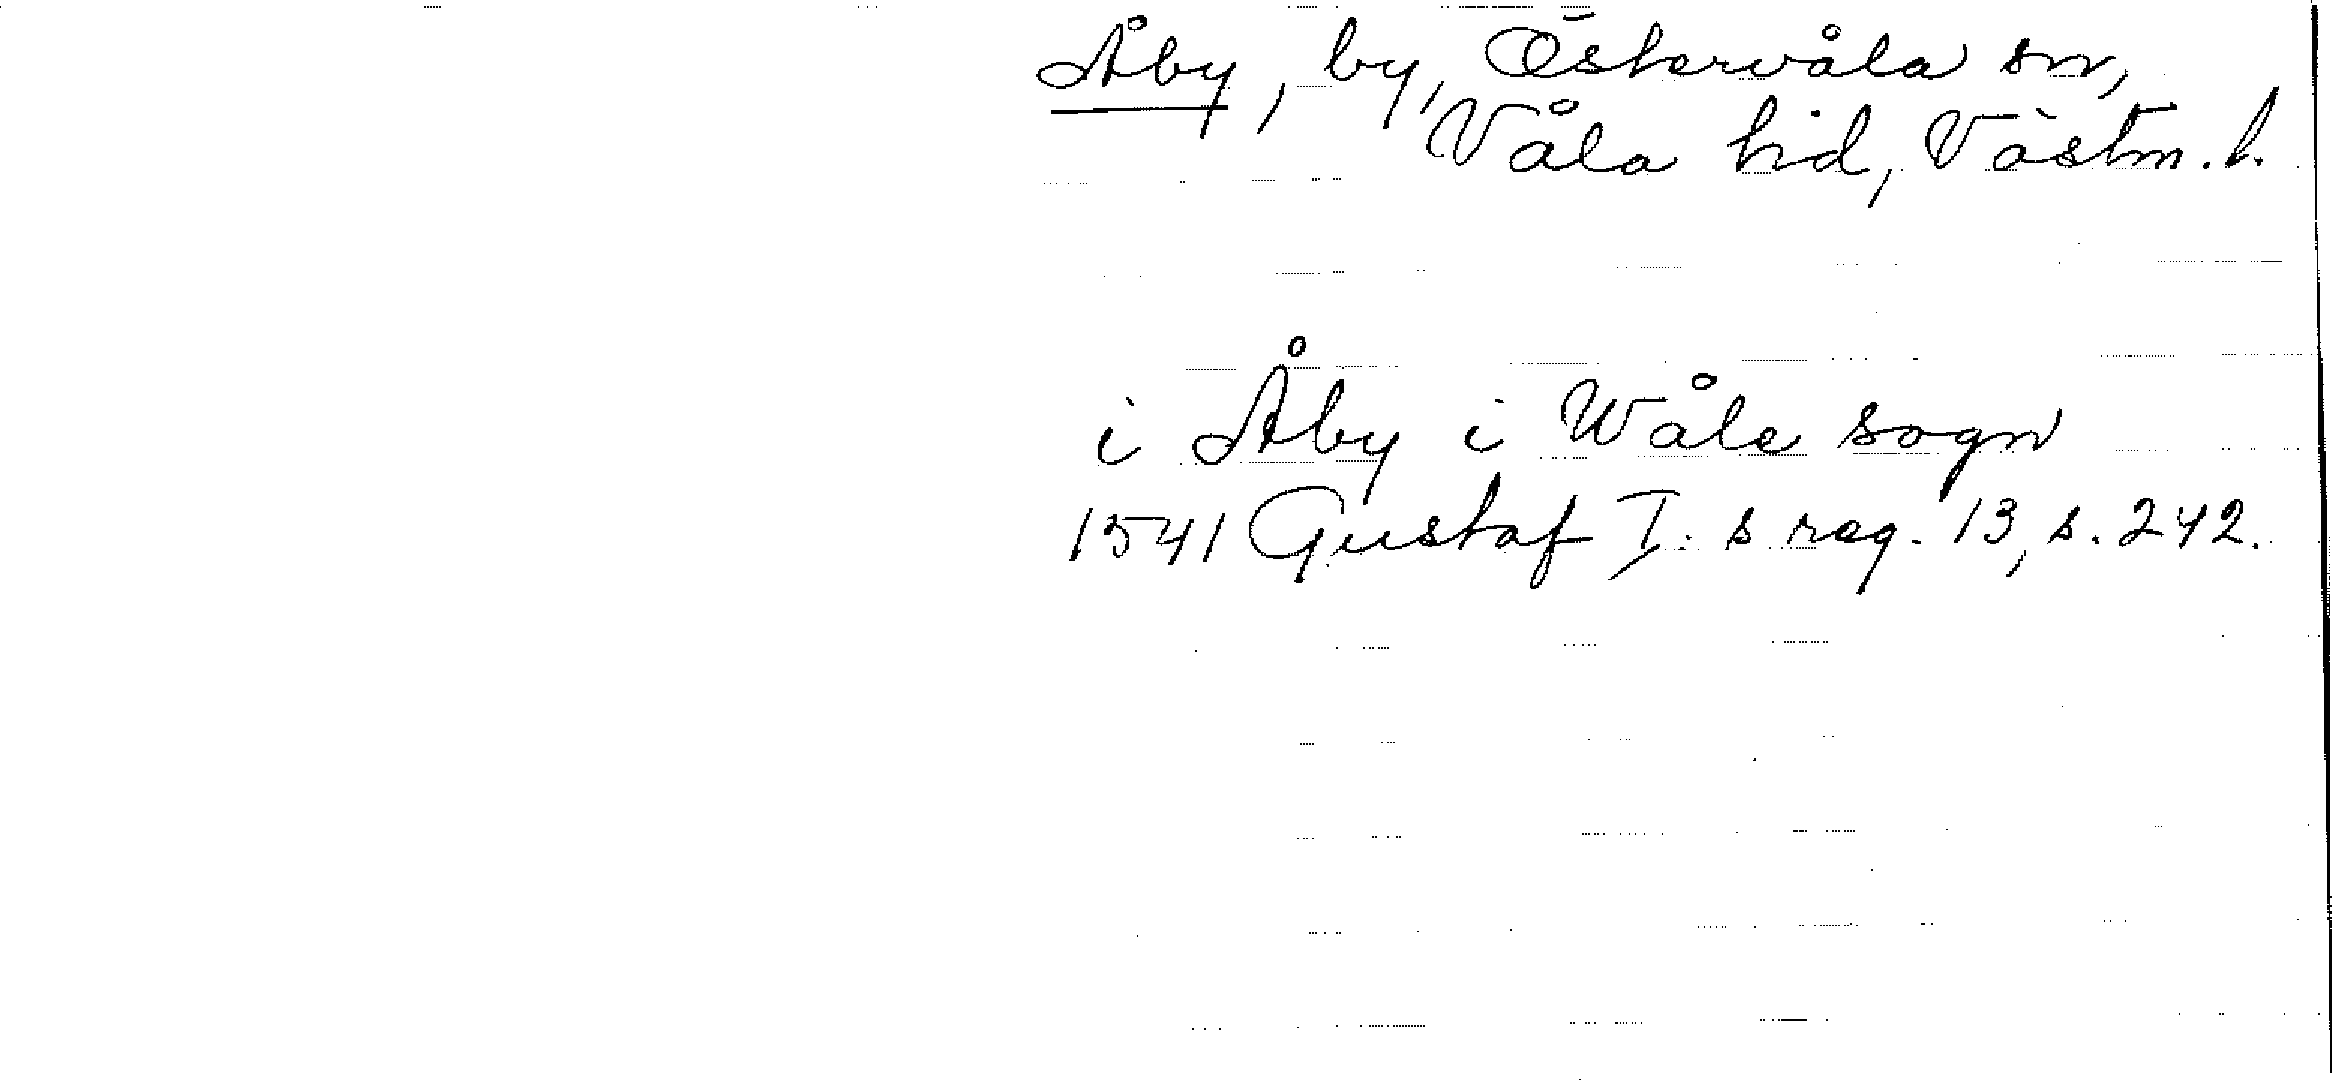 Åby, by, Östervåla sn,
Våla hd, Västm. l.
i Åby i Wåle sogn
1541 Gustaf I:s reg. 13, s. 242.